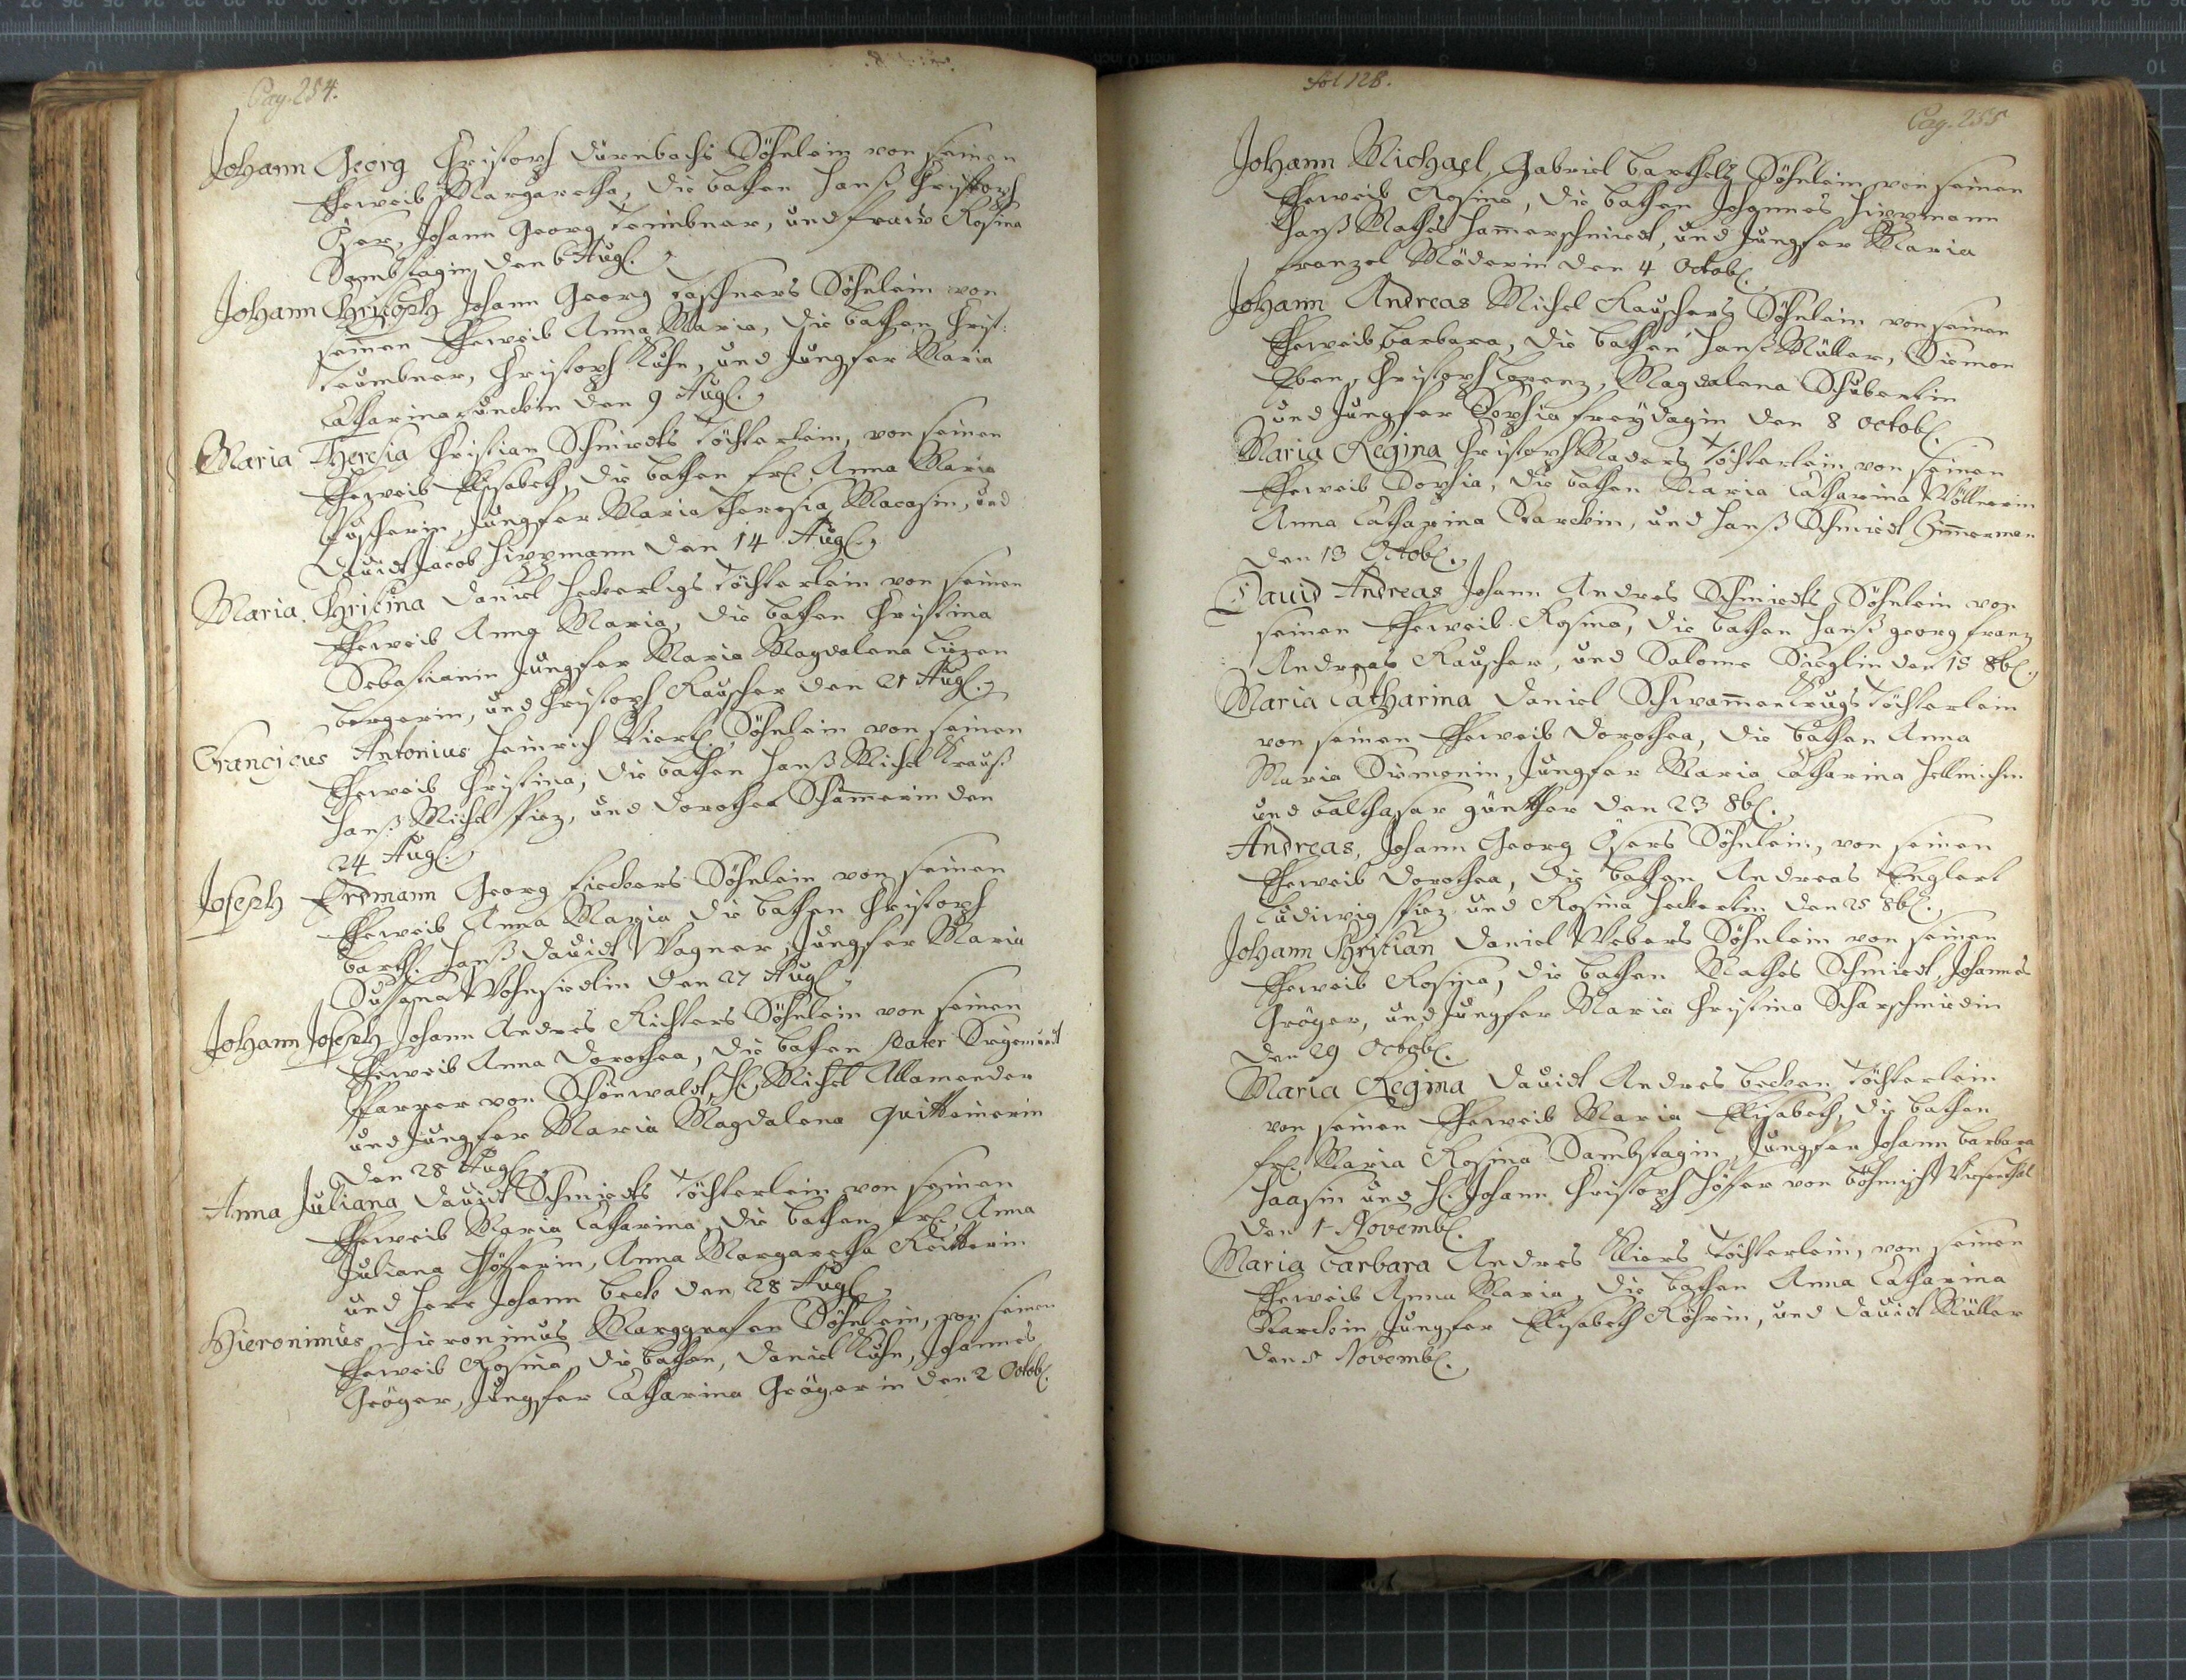 Pag. 254.
Johann Georg Christoph Dürnbachs Söhnlein von seinen
Eheweib Margaretha, die bathen Hanß Christoph
Öser, Johann Georg Teimbner, und fraw Rosina
Sambstagin den 6 Aug.
Johann Christoph Johann Georg Taschners Söhnlein von
seinen Eheweib Anna Maria, die bathen Christ:
Teumbner, Christoph Kuhn, und Jungfer Maria
Catharina den 9 Aug.
Maria Theresia Christian Schmiedts Töchterlein, von seinen
Eheweib Elisabeth, die bathen fr. Anna Maria
Jungfer Maria Theresia Macasin, und
Dauidt Jacob Hippmann den 14 Aug.
Maria Christina Daniel Heckerligs Töchterlein von seinen
Eheweib Anna Maria, die bathen Christina
Sebastianin Jungfer Maria Magdalena Luzen
bergerin, und Christoph Rauscher den 21 Aug.
Franciscus Antonius Heinrich Viertl. Söhnlein von seinen
Eheweib Christina, die bathen Hanß Michl Krauß
Hanß Michl Piez, und Dorothea Schammerin den
24 Aug.
Joseph Erdmann Georg Fickers Söhnlein von seinen
Eheweib Anna Maria die bathen Christoph
Barthl. Hanß Dauidt Wagner, Jungfer Maria
Susana Wohnsiedlin den 27 Aug.
Johann Joseph Johann Andres Richters Söhnlein von seinen
Eheweib Anna Dorothea, die bathen Pater Sigemundt
Pfarrer von Schönwaldt, H. Michl Allamander
und Jungfer Maria Magdalena Quittainerin
den 28 Aug.
Anna Juliana Dauidt Schmiedts Töchterlein von seinen
Eheweib Maria Catharina, die bathen fr. Anna
Juliana Höfferin, Anna Margaretha Reitterin
und Herr Johann Beck den 28 Aug.
Hieronimus Hieronimus Marggrafen Söhnlein, von seinen
Eheweib Rosina, die bathen, Daniel Kuhn, Johannes
Gröger, Jungfer Catharina Grögerin den 2 Octob.
Fol 128.
Pag. 255
Johann Michael, Gabriel Barthels Söhnlein von seinen
Eheweib Rosina, die bathen Johannes Hippmann
Hanß Mathes Hamerschmiedt, und Jungfer Maria
Franzel Mäderin den 4 Octob.
Johann Andreas Michel Rauschers Söhnlein von seinen
Eheweib Barbara, die bathen Hanß Müller, Siemon
Eben, Christoph Lorenz, Magdalena Schubertin
und Jungfer Sophia Freydagin den 8 Octob.
Maria Regina Christoph Maders Töchterlein von seinen
Eheweib Sophia, die bathen Maria Catharina Völlnerin
Anna Catharina Starckin, und Hanß Schmiedt Zimerman
den 13 Octob.
Dauid Andreas Johann Andres Schmiedts Söhnlein von
seinen Eheweib Rosina, die bathen Hanß georg Franz
Andreas Rauscher, und Salome Sieglin den 15 8b.
Maria Catharina Daniel Schwamenkrugs Töchterlein
von seinen Eheweib Dorothea, die bathen Anna
Maria Siemonin, Jungfer Maria Catharina Hellmichin
und Balthasar günther den 23 8b.
Andreas, Johann Georg Ösers Söhnlein, von seinen
Eheweib Dorothea, die bathen Andreas Englert
Ludiwig Piez und Rosina Heckertin den 25 8b.
Johann Christian Daniel Webers Söhnlein von seinen
Eheweib Rosina, die bathen Mathes Schmiedt, Johannes
Gröger, und Jungfer Maria Christina Scharschmiedin
den 29 Octob.
Maria Regina Dauidt Andres Becken Töchterlein
von seinen Eheweib Maria Elisabeth, die bathen
fr. Maria Rosina Sambstagin, Jungfer Johann Barbara
Haasin und H. Johann Christoph Höffer von Böhmisch Wiesenthal
den 1 Novemb.
Maria Barbara Andres Kiers Töchterlein, von seinen
Eheweib Anna Maria, die bathen Anna Catharina
Starckin, Jungfer Elisabeth Röhrin, und Dauidt Müller
den 5 Novemb.